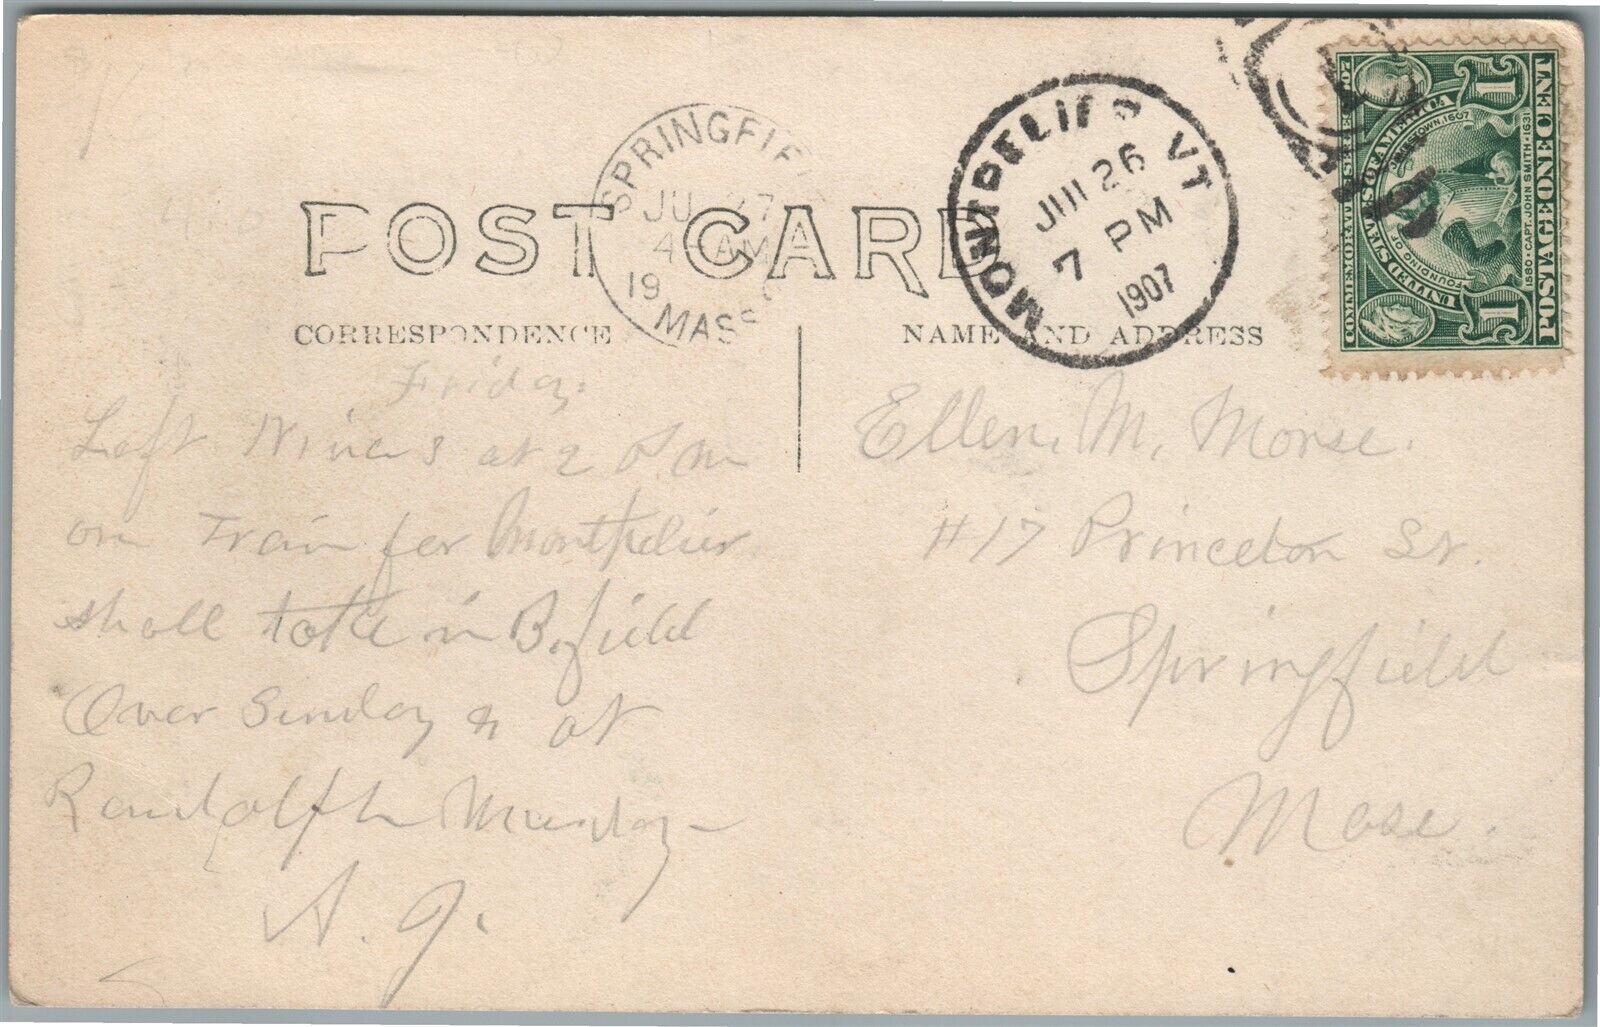 POST CARD
CORRESPONDENCE
NAME AND ADDRESS
SPRINGFIE
JU 27
4 AM
19
MASS
MONTPELIER VT
JUL 26
7 PM
1907
COMMEMORATIVE SERIES 1907
UNITED STATES OF AMERICA
FOUNDING OF JAMESTOWN, 1607
1580 · CAPT. JOHN SMITH · 1631
POSTAGE ONE CENT
1 1
Friday.
Left at 2 P M
on Train for Montpelier
shall take in B.field
Over Sunday & at
Randolph Munday
A. J.
Ellen. M. Morse.
#17 Princeton St.
Springfield
Mass.